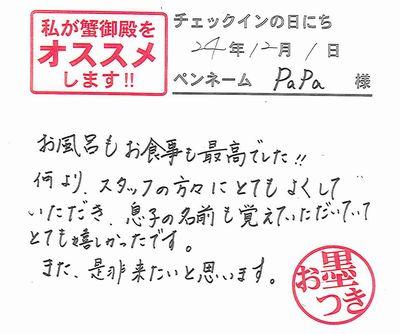 私が蟹御殿を
オススメ
します!!
チェックインの日にち
24年12月1日
ペンネーム PaPa 様
お風呂もお食事も最高でした!!
何より、スタッフの方々にとてもよくして
いただき、息子の名前も覚えていただいていて
とても嬉しかったです。
また、是非来たいと思います。
お墨つき